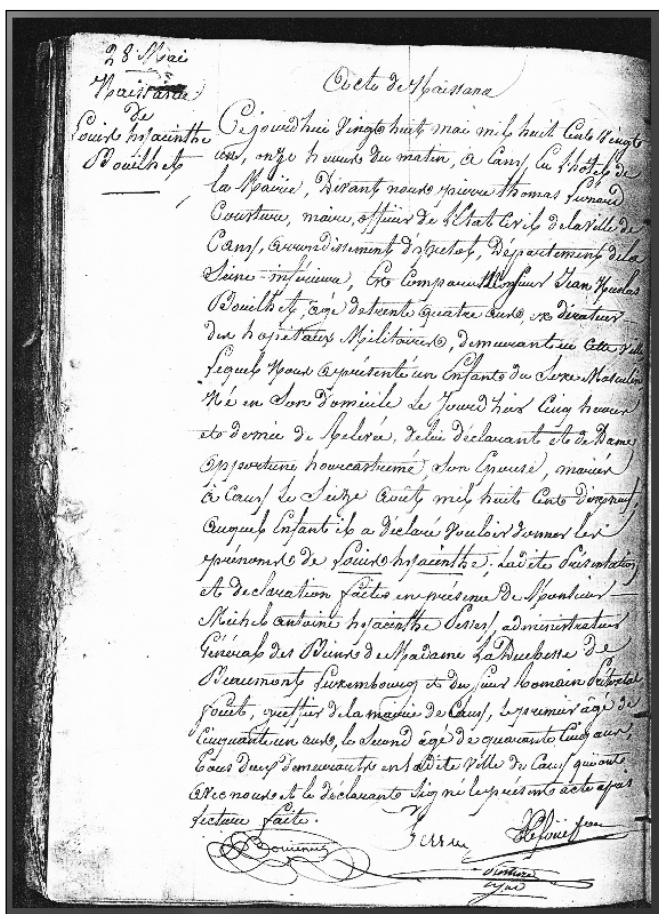 28 Mai
Naissance
de
Louis hyacinthe
Bouilhet
Acte de Naissance
Cejourdhui vingt huit mai mil huit cent vingt
un, onze heures du matin, à Cany en l'hotel de
la Mairie, Devant nous pierre thomas
Couture, maire, officier de l'Etat Civil de la ville de
Cany, arrondissement d'yvetot, Département de la
Seine-inférieure, Est Comparu Monsieur Jean Nicolas
Bouilhet, âgé de trente quatre ans, ex directeur
des hopitaux Militaires, demeurant en cette ville
lequel Nous a présenté un Enfant du Sexe Masculin
Né en Son domicile le Jourd'hier Cinq heures
et demie de Relevée, de lui déclarant et de Dame
Son Epouse, mariés
à Cany le Seize Août mil huit Cent dixneuf,
auquel Enfant il a déclaré Vouloir donner les
prénoms de Louis hyacinthe. Ladite Présentation
et déclaration faites en présence de Monsieur
Michel antoine hyacinthe administrateur
Général des Biens de Madame La Duchesse de
Beaumont Luxembourg et du sieur Romain
greffier de la mairie de Cany, le premier âgé de
Cinquante un ans, le Second âgé de quarante Cinq ans,
tous deux demeurants en ladite ville de Cany qui ont
avec nous et le déclarant Signé le présent acte après
lecture faite.